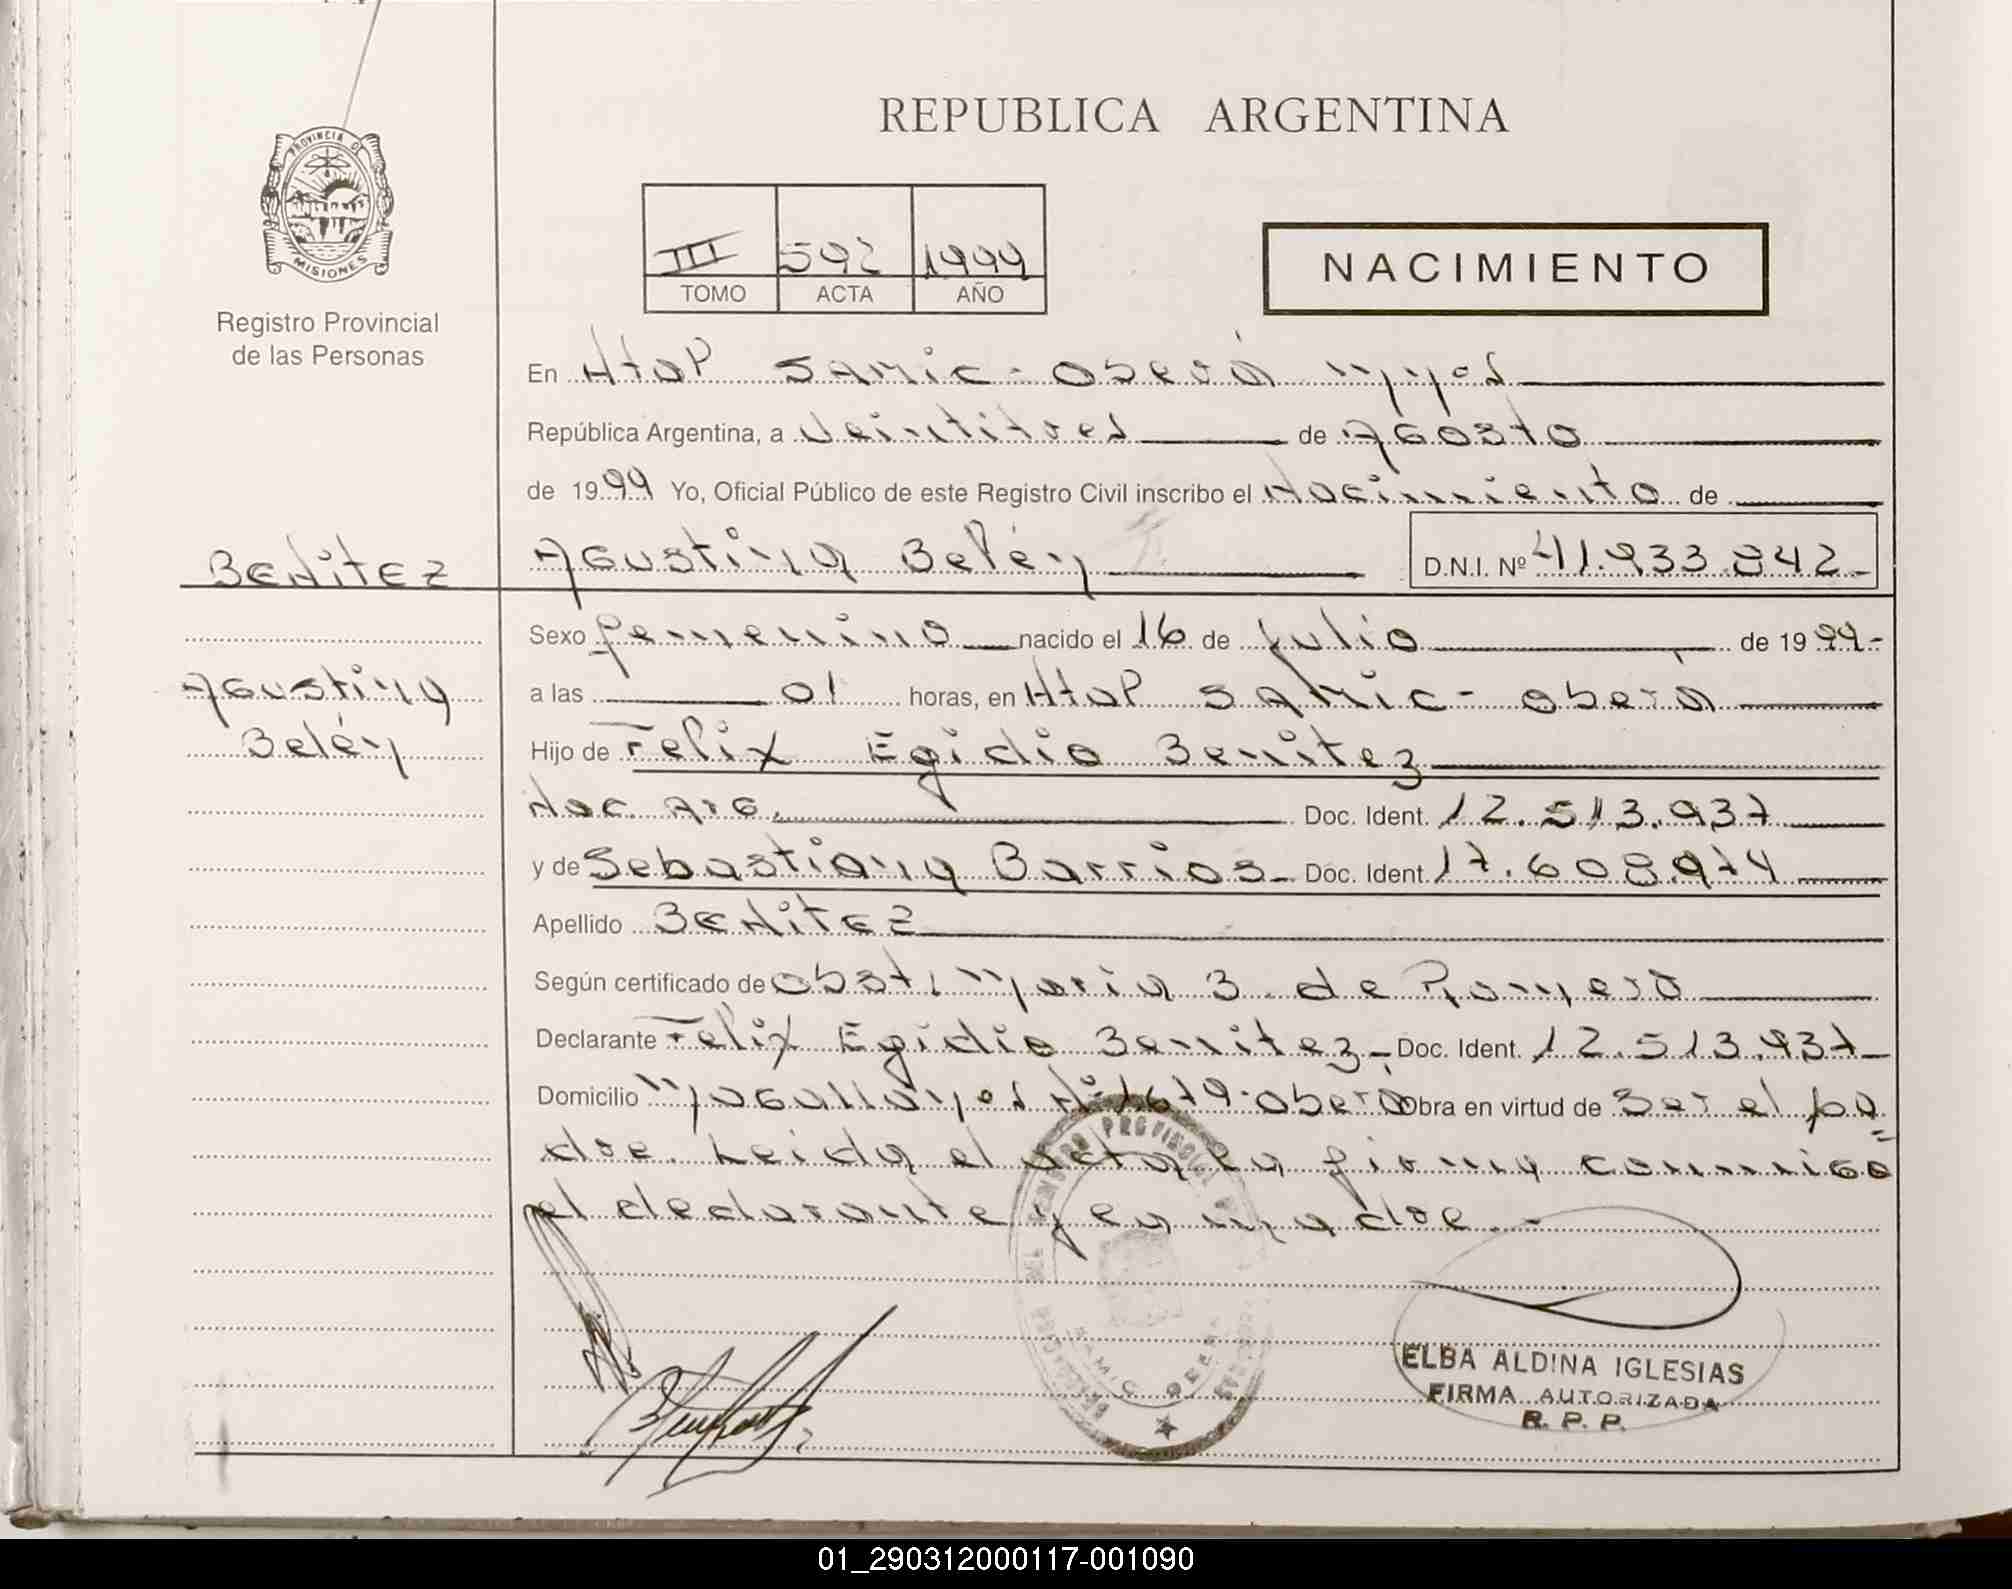 REPUBLICA ARGENTINA
PROVINCIA DE
MISIONES
Registro Provincial
de las Personas
III 592 1999
TOMO ACTA AÑO
NACIMIENTO
En Htal Samic - Oberá Mnes
República Argentina, a veintitres de Agosto
de 1999 Yo, Oficial Público de este Registro Civil inscribo el Nacimiento de
BENITEZ Agustina Belén D.N.I. Nº 41.933.842
Sexo femenino nacido el 16 de julio de 1999-
Agustina
Belén
a las 01 horas, en Htal Samic - Oberá
Hijo de Felix Egidio Benitez
Nac. Arg. Doc. Ident. 12.513.937
y de Sebastiana Barrios - Doc. Ident. 17.608.974
Apellido BENITEZ
Según certificado de Obst. Maria B. de Romero
Declarante Felix Egidio Benitez - Doc. Ident. 12.513.937
Domicilio Magallanes Nº 1679 - Oberá Obra en virtud de Ser el pa=
dre. Leida el acta la firma conmigo
el declarante y la madre.-
SAMIC OBERA
ELBA ALDINA IGLESIAS
FIRMA AUTORIZADA
R. P. P.
01_290312000117-001090